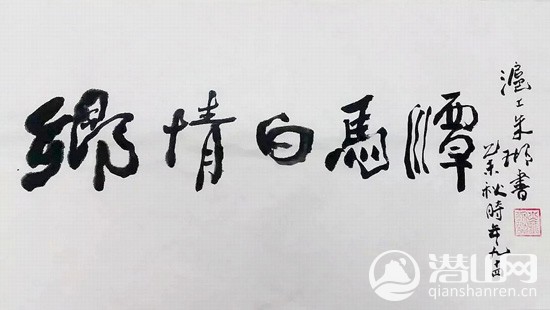 鄉情白馬潭
滬上朱 書
秋時年九十四
潜山网
qianshanren.cn